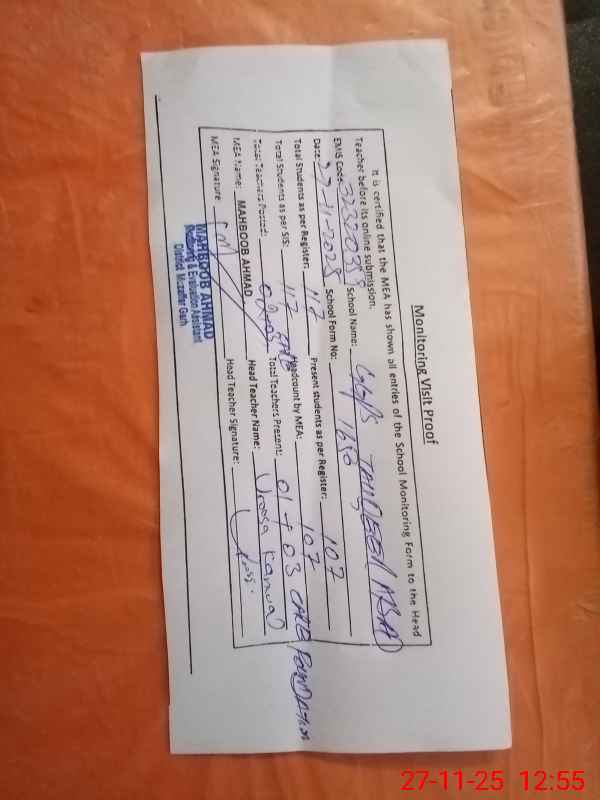 Monitoring Visit Proof
It is certified that the MEA has shown all entries of the School Monitoring Form to the Head
Teacher before its online submission.
EMIS Code: School Name:
Date: 27-11-2025 School Form No: 1650
Total Students as per Register: 117 Present students as per Register: 107
Total Students as per SIS: 117 Headcount by MEA: 107
Total Teachers Posted: Total Teachers Present: 01 + 03 CARE FOUNDATION
MEA Name: MAHBOOB AHMAD Head Teacher Name: Kanwal
MEA Signature: Head Teacher Signature:
MAHBOOB AHMAD
Monitoring & Evaluation Assistant
District Muzaffar Garh
27-11-25 12:55